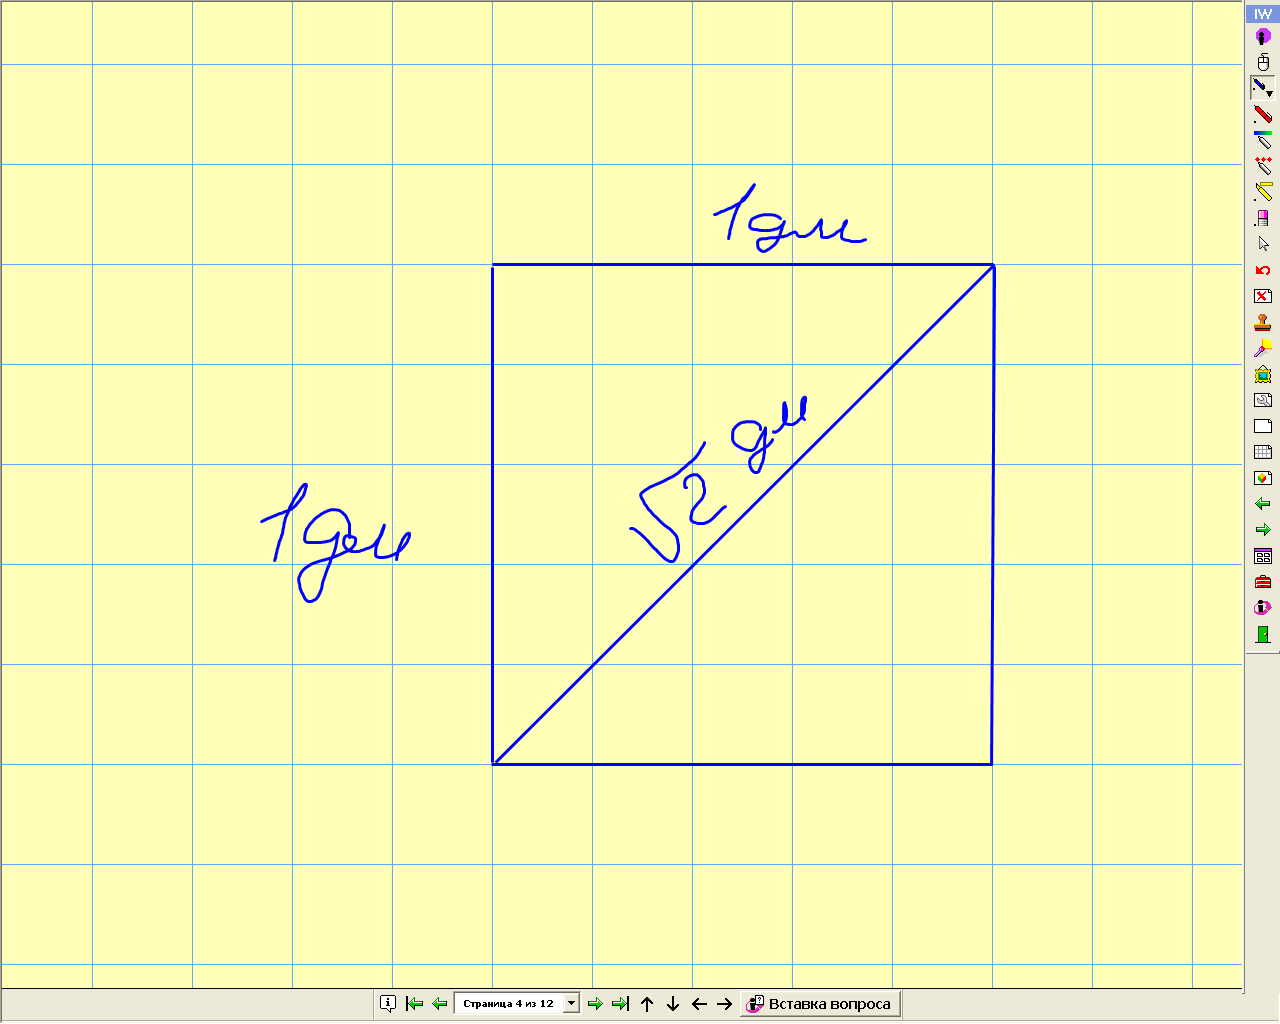 IW
1дм
√2 дм
1дм
Страница 4 из 12
Вставка вопроса